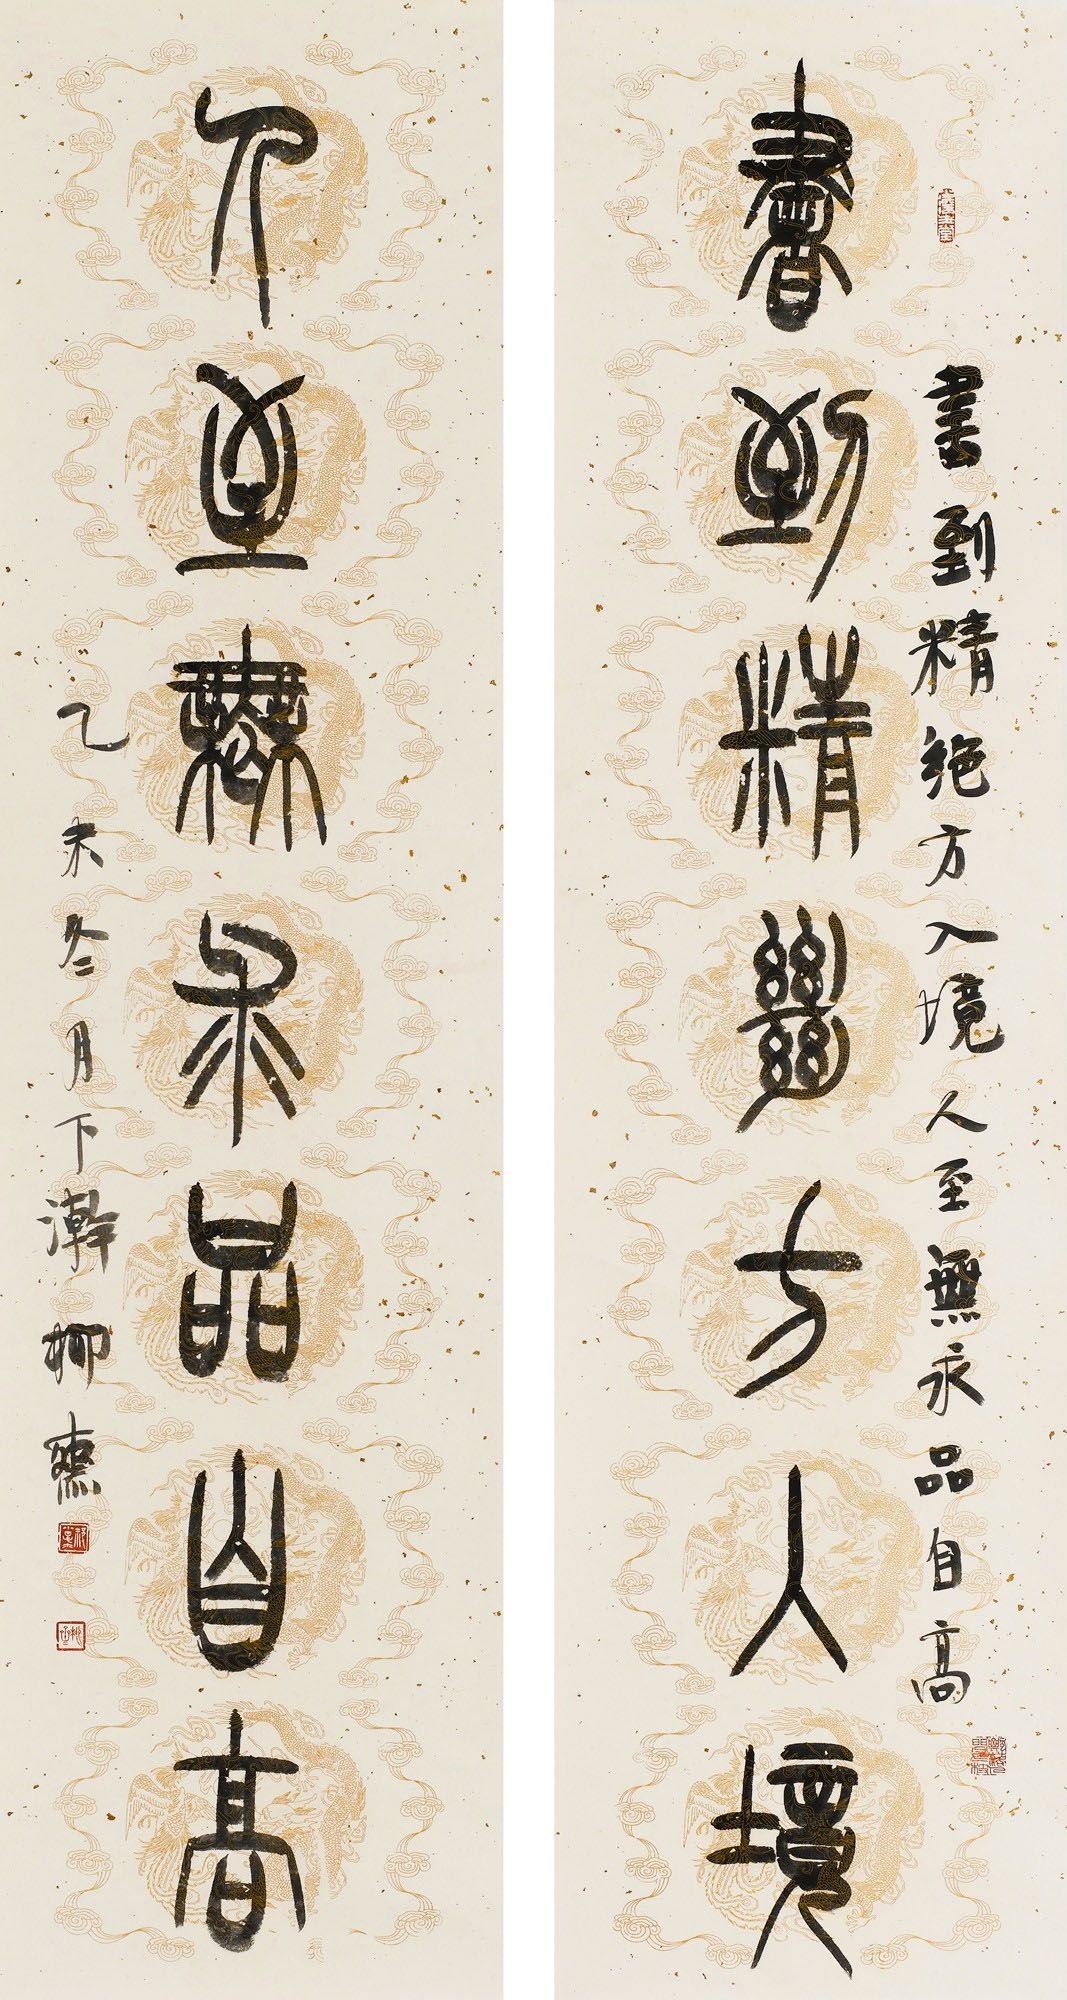 書到精絕方入境人至無求品自高
書到精絕方入境
人至無求品自高
乙未冬月下澣